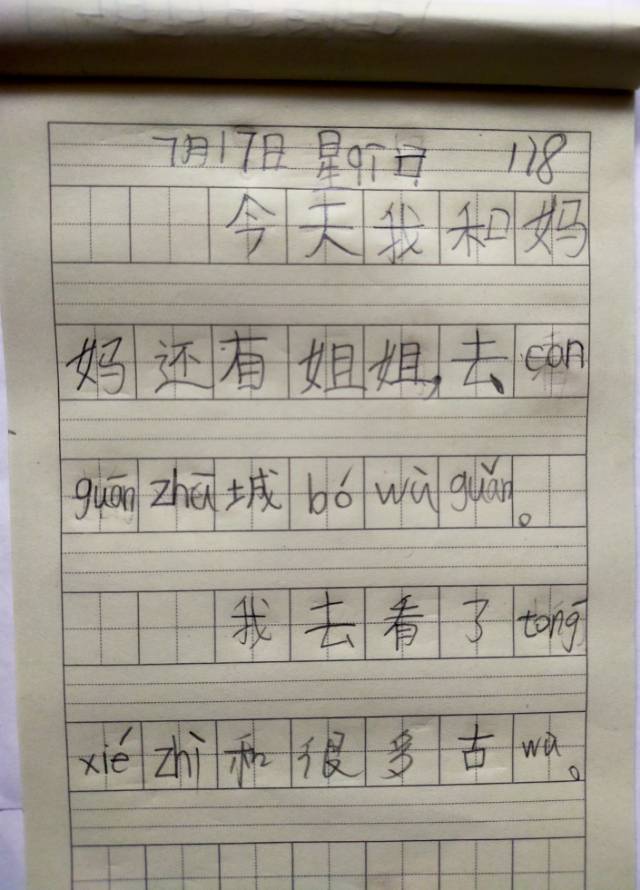 7月17日 星qī日 118
今天我和妈
妈还有姐姐,去can
guān zhū城bó wù guǎn。
我去看了tóng
xié zhì和很多古wù。